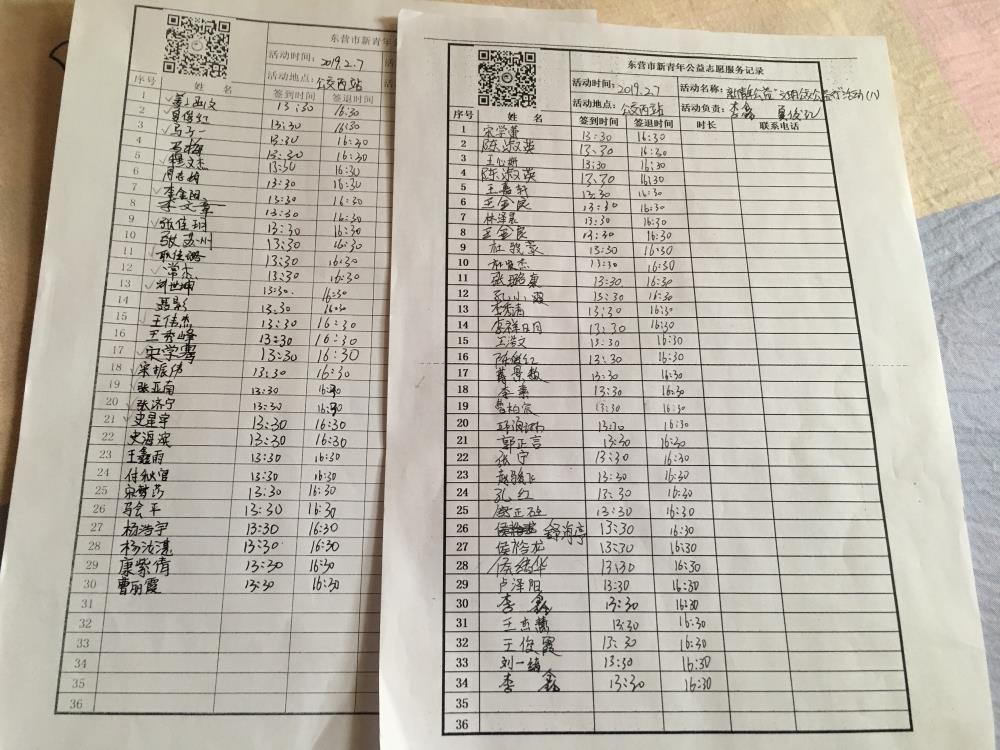 东营市新青年公
活动时间： 2019.2.7
活动地点： 公交西站
序号 姓 名 签到时间 签退时间
1 13:30 16:30
2
3 马一 13:30 16:30
4 马梅 13:30 16:30
5 穆文杰 13:30 16:30
6 13:30 16:30
7 李金阳 13:30 16:30
8 13:30
9 张佳玥 13:30 16:30
10 张苏州 13:30 16:30
11 13:30 16:30
12 常杰 13:30 16:30
13 刘世坤 13:30 16:30
14 聂影 13:30 16:30
15 王伟杰 13:30 16:30
16 王秀峰 13:30 16:30
17 宋学骞 13:30 16:30
18 宋振伟 13:30 16:30
19 张亚南 13:30 16:30
20 张济宁 13:30 16:30
21 史星宇 13:30 16:30
22 史海滨 13:30 16:30
23 王鑫雨 13:30 16:30
24 付秋官 13:30 16:30
25 13:30 16:30
26 马会平 13:30 16:30
27 杨浩宇 13:30 16:30
28 杨汝湛 13:30 16:30
29 康紫倩 13:30 16:30
30 曹丽霞 13:30 16:30
31
32
33
34
35
36
东营市新青年公益志愿服务记录
活动时间： 2019.2.7 活动名称：
活动地点： 公交西站 活动负责： 李鑫
序号 姓 名 签到时间 签退时间 时长 联系电话
1 宋学蕾 13:30 16:30
2 陈淑英 13:30 16:30
3 王心妍 13:30 16:30
4 陈淑英 13:30 16:30
5 王嘉轩 13:30 16:30
6 王金良 13:30 16:30
7 林泽晨 13:30 16:30
8 王金良 13:30 16:30
9 杜骏豪 13:30 16:30
10 13:30 16:30
11 张璐康 13:30 16:30
12 孔小霞 13:30 16:30
13 李秀清 13:30 16:30
14 李祥日月 13:30 16:30
15 王浩文 13:30 16:30
16 陈俊红 13:30 16:30
17 13:30 16:30
18 李素 13:30 16:30
19 曹柏宸 13:30 16:30
20 13:30 16:30
21 郭正言 13:30 16:30
22 张宁 13:30 16:30
23 13:30 16:30
24 孔红 13:30 16:30
25 13:30 16:30
26 舒海亭 13:30 16:30
27 侯裕龙 13:30 16:30
28 侯绪华 13:30 16:30
29 卢泽阳 13:30 16:30
30 李鑫 13:30 16:30
31 王杰慧 13:30 16:30
32 王俊霞 13:30 16:30
33 刘一 13:30 16:30
34 李鑫 13:30 16:30
35
36